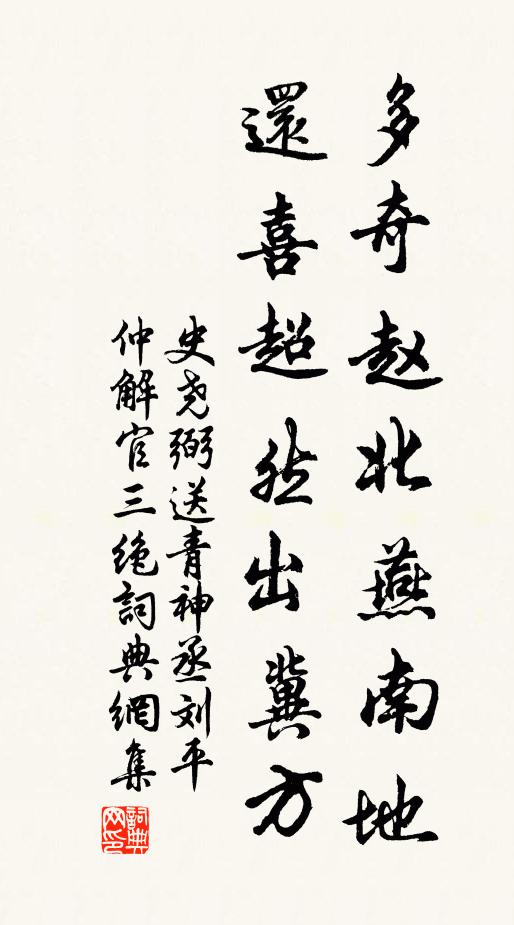 多奇赵北燕南地
還喜超然出冀方
史尧弼送青神丞刘平
仲解官三绝詞典網集
詞典网印